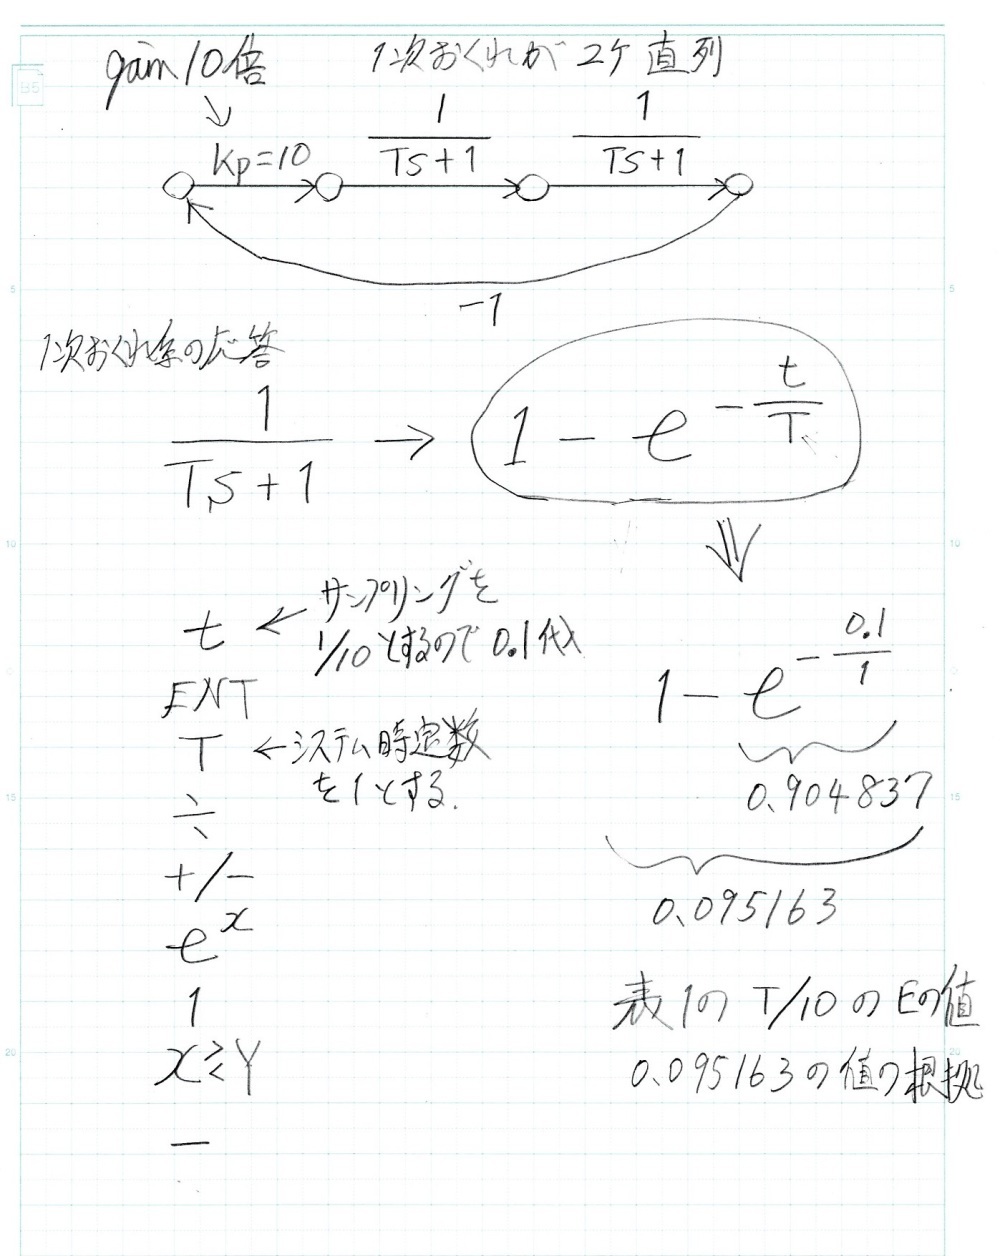 gain 10倍
1次おくれが 2ケ 直列
Kp=10
1/(Ts+1)
1/(Ts+1)
-1
1次おくれ系の応答
1/(Ts+1) → 1 - e^(-t/T)
t ← サンプリングを
1/10とするので 0.1代入
ENT
T ← システム時定数
を1とする.
÷
+/-
e^x
1
x≷Y
-
1 - e^(-0.1/1)
0.904837
0.095163
表1の T/10 の Eの値
0.095163の値の根拠
B5
5
5
10
10
15
15
20
20